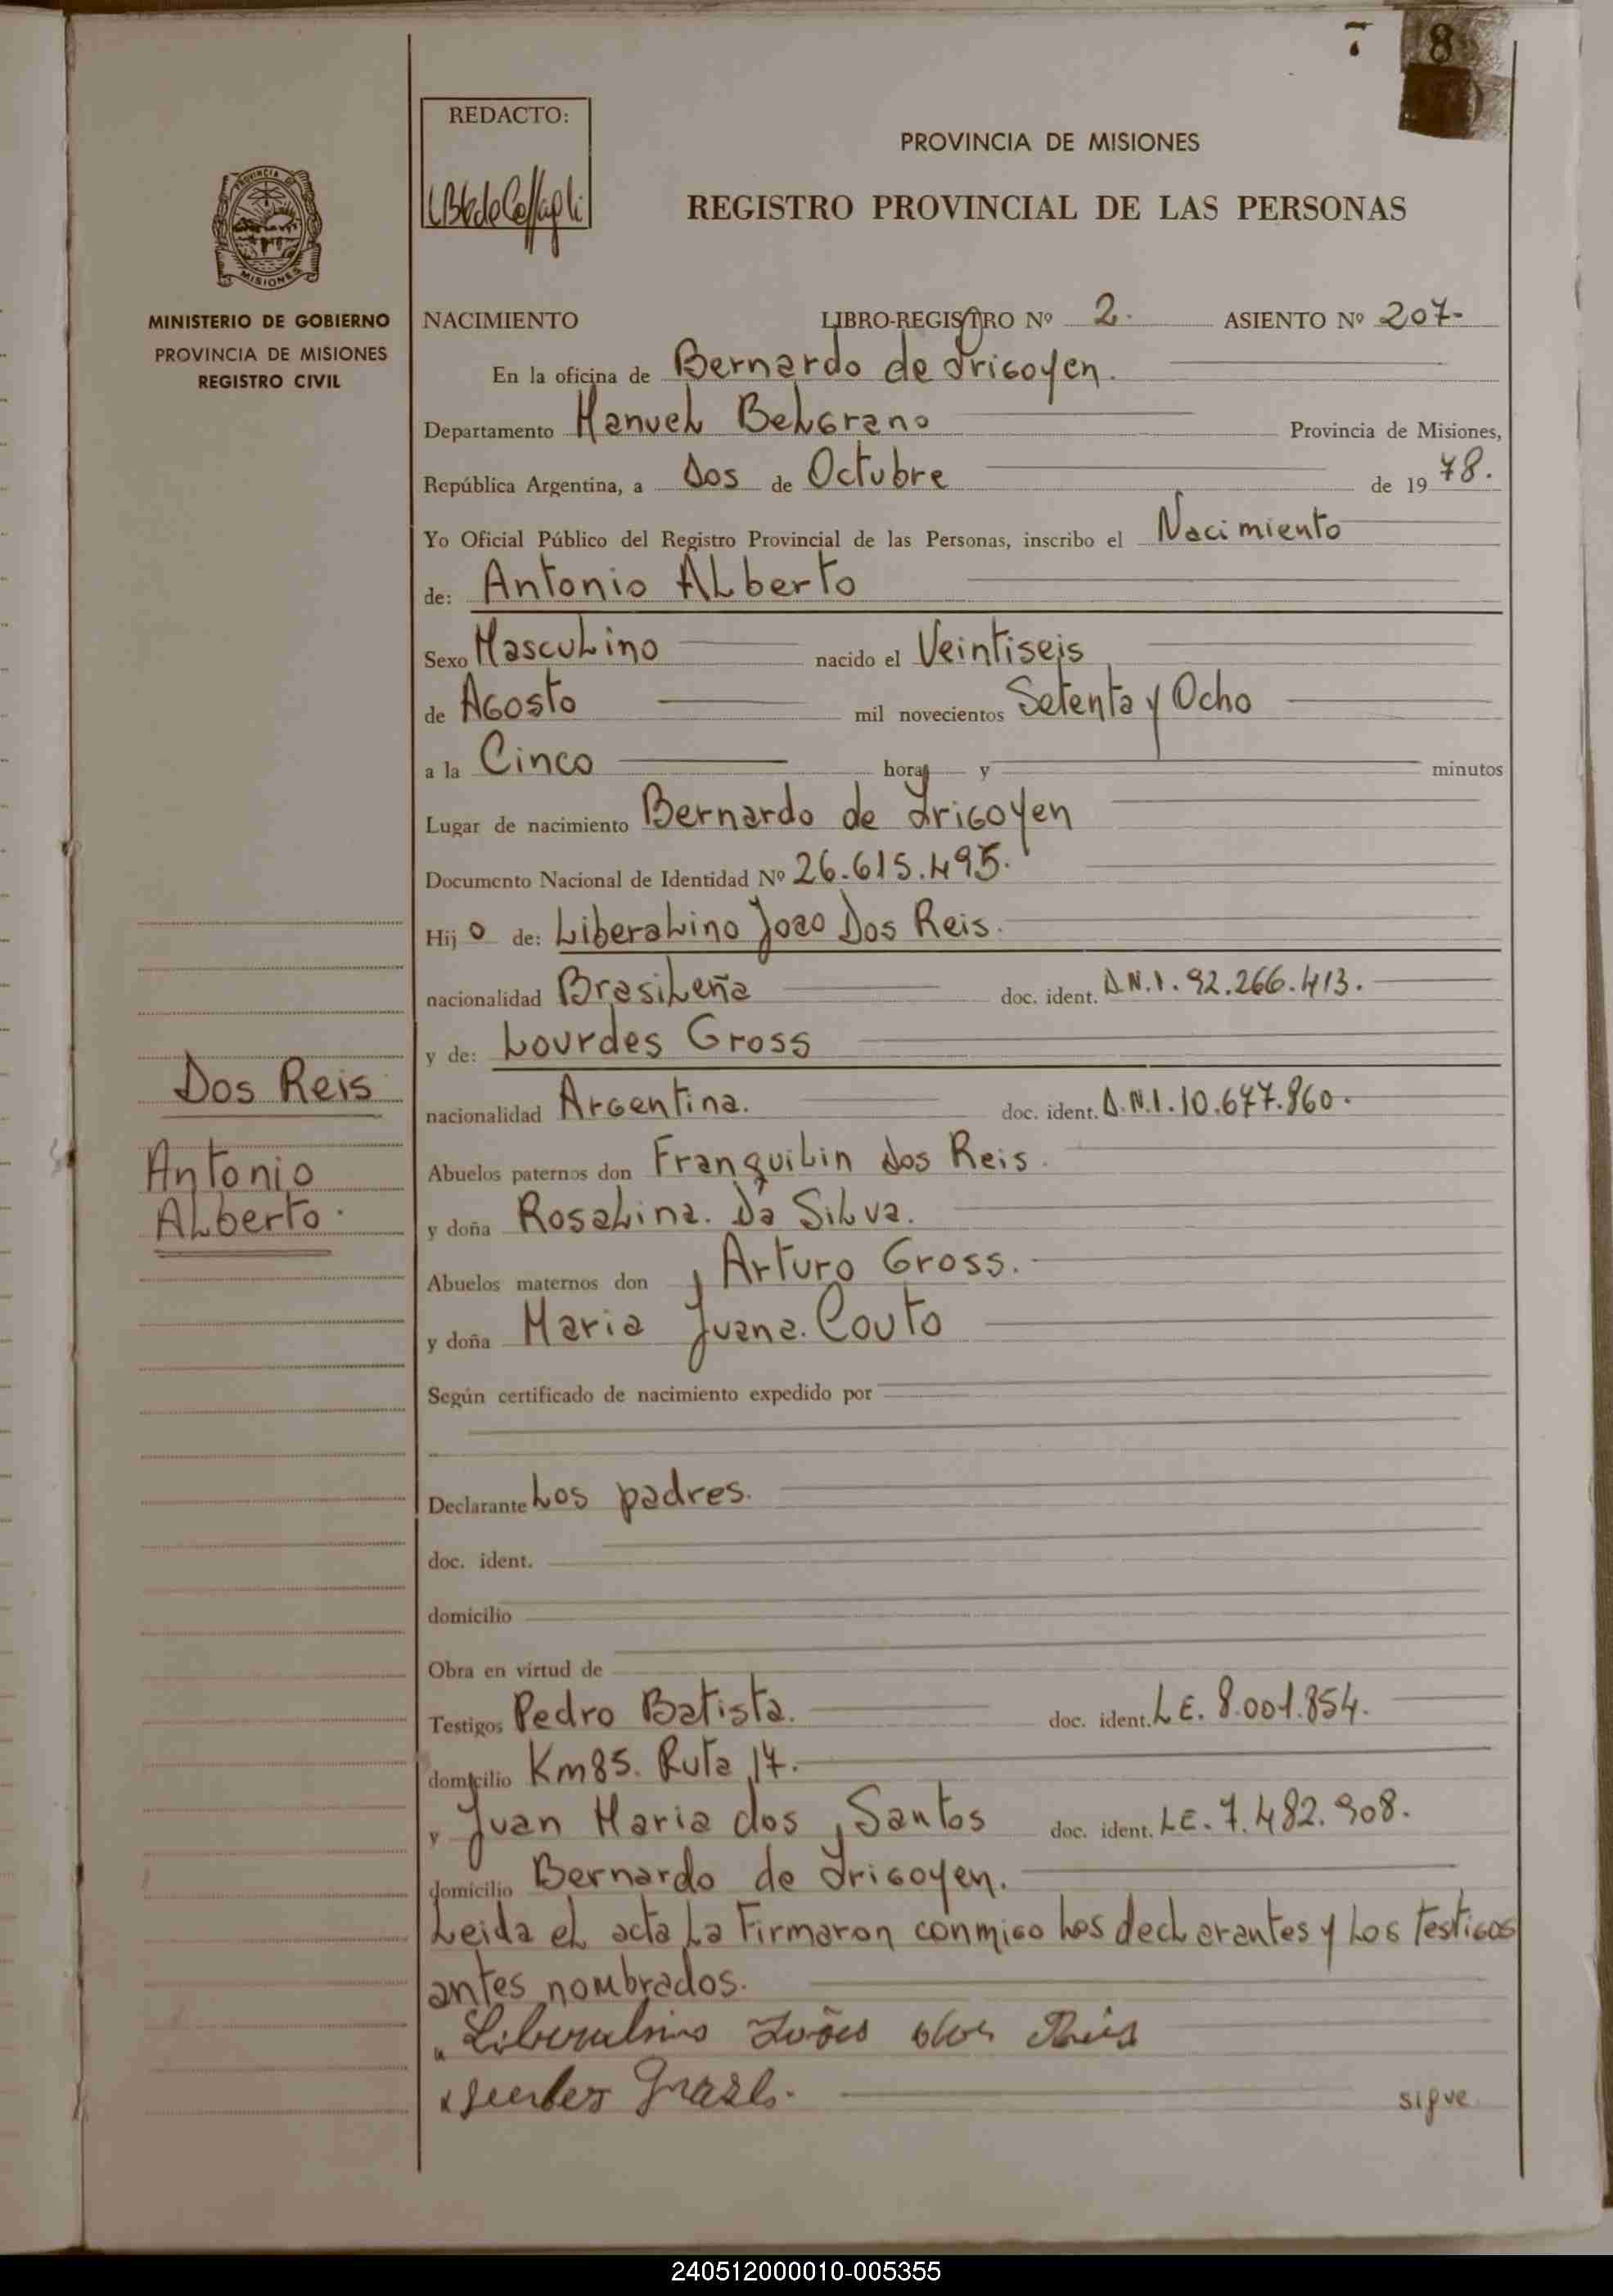 7 8
REDACTO:
PROVINCIA DE MISIONES
REGISTRO PROVINCIAL DE LAS PERSONAS
PROVINCIA DE
MISIONES
MINISTERIO DE GOBIERNO
PROVINCIA DE MISIONES
REGISTRO CIVIL
NACIMIENTO LIBRO-REGISTRO Nº 2. ASIENTO Nº 207-
En la oficina de Bernardo de Irigoyen.
Departamento Manuel Belgrano Provincia de Misiones,
República Argentina, a Dos de Octubre de 1978.
Yo Oficial Público del Registro Provincial de las Personas, inscribo el Nacimiento
de: Antonio Alberto
Sexo Masculino nacido el Veintiseis
de Agosto mil novecientos Setenta y Ocho
a la Cinco horas y minutos
Lugar de nacimiento Bernardo de Irigoyen
Documento Nacional de Identidad Nº 26.615.495.
Hijo de: Liberalino Joao Dos Reis.
nacionalidad Brasileña doc. ident. D.N.I. 92.266.413.
y de: Lourdes Gross
nacionalidad Argentina. doc. ident. D.N.I. 10.677.860.
Dos Reis
Antonio
Alberto.
Abuelos paternos don Franquilin dos Reis.
y doña Rosalina. Da Silva.
Abuelos maternos don Arturo Gross.
y doña Maria Juana. Couto
Según certificado de nacimiento expedido por
Declarante Los padres.
doc. ident.
domicilio
Obra en virtud de
Testigos Pedro Batista. doc. ident. L.E. 8.001.854.
domicilio Km 85. Ruta 14.
y Juan Maria dos Santos doc. ident. L.E. 7.482.908.
domicilio Bernardo de Irigoyen.
Leida el acta la Firmaron conmigo los declarantes y los testigos
antes nombrados.
Liberalino João dos Reis
sigue
240512000010-005355